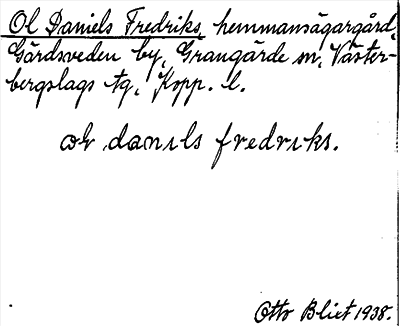 Ol Daniels Fredriks, hemmansägargård,
Gårdsveden by, Grangärde sn, Väster-
bergslags tg, Kopp. l.
ol danils fredriks.
Otto Blixt 1938.